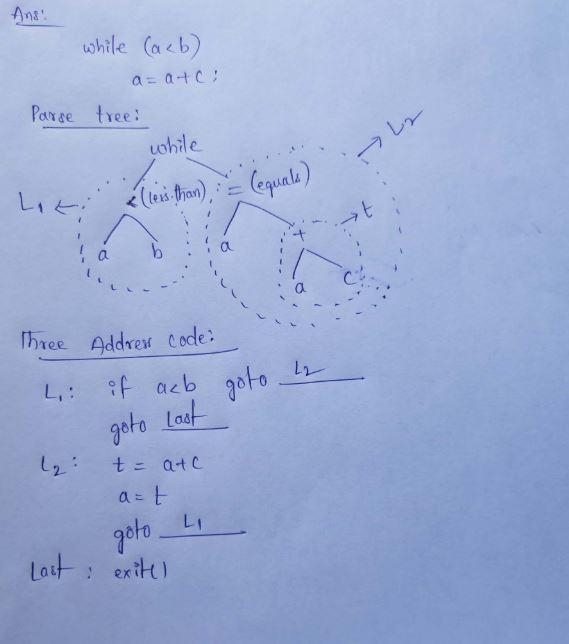 Ans:
while (a<b)
a = a+c;
Parse tree:
while
L2
L1
< (less.than)
= (equals)
t
a
b
a
+
a
c
Three Address code:
L1: if a<b goto L2
goto Last
L2: t = a+c
a = t
goto L1
Last : exit()